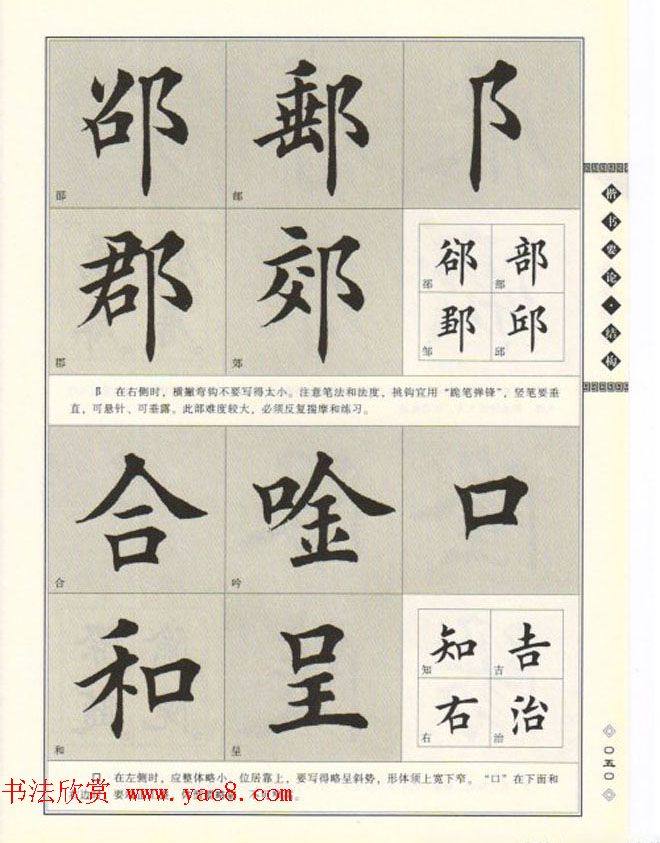 邵 郵 阝
邵 邮
郡 郊 郤 部
郡 郊 邹 邱
阝 在右侧时，横撇弯钩不要写得太小。注意笔法和法度，挑钩宜用“跪笔弹锋”，竖笔要垂
直，可悬针、可垂露。此部难度较大，必须反复揣摩和练习。
合 唫 口
合 吟
和 呈 知 吉
和 呈 知 吉
右 治
右 治
口 在左侧时，应整体略小，位居靠上，要写得略呈斜势，形体须上宽下窄。“口”在下面和
楷书要论·结构
〇五〇
书法欣赏 www.yac8.com